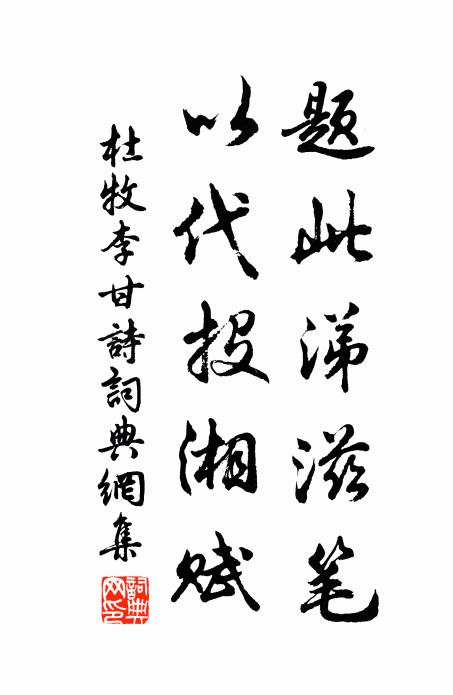 题此涕滋笔
以代投湘赋
杜牧李甘詩詞典網集
詞典网印